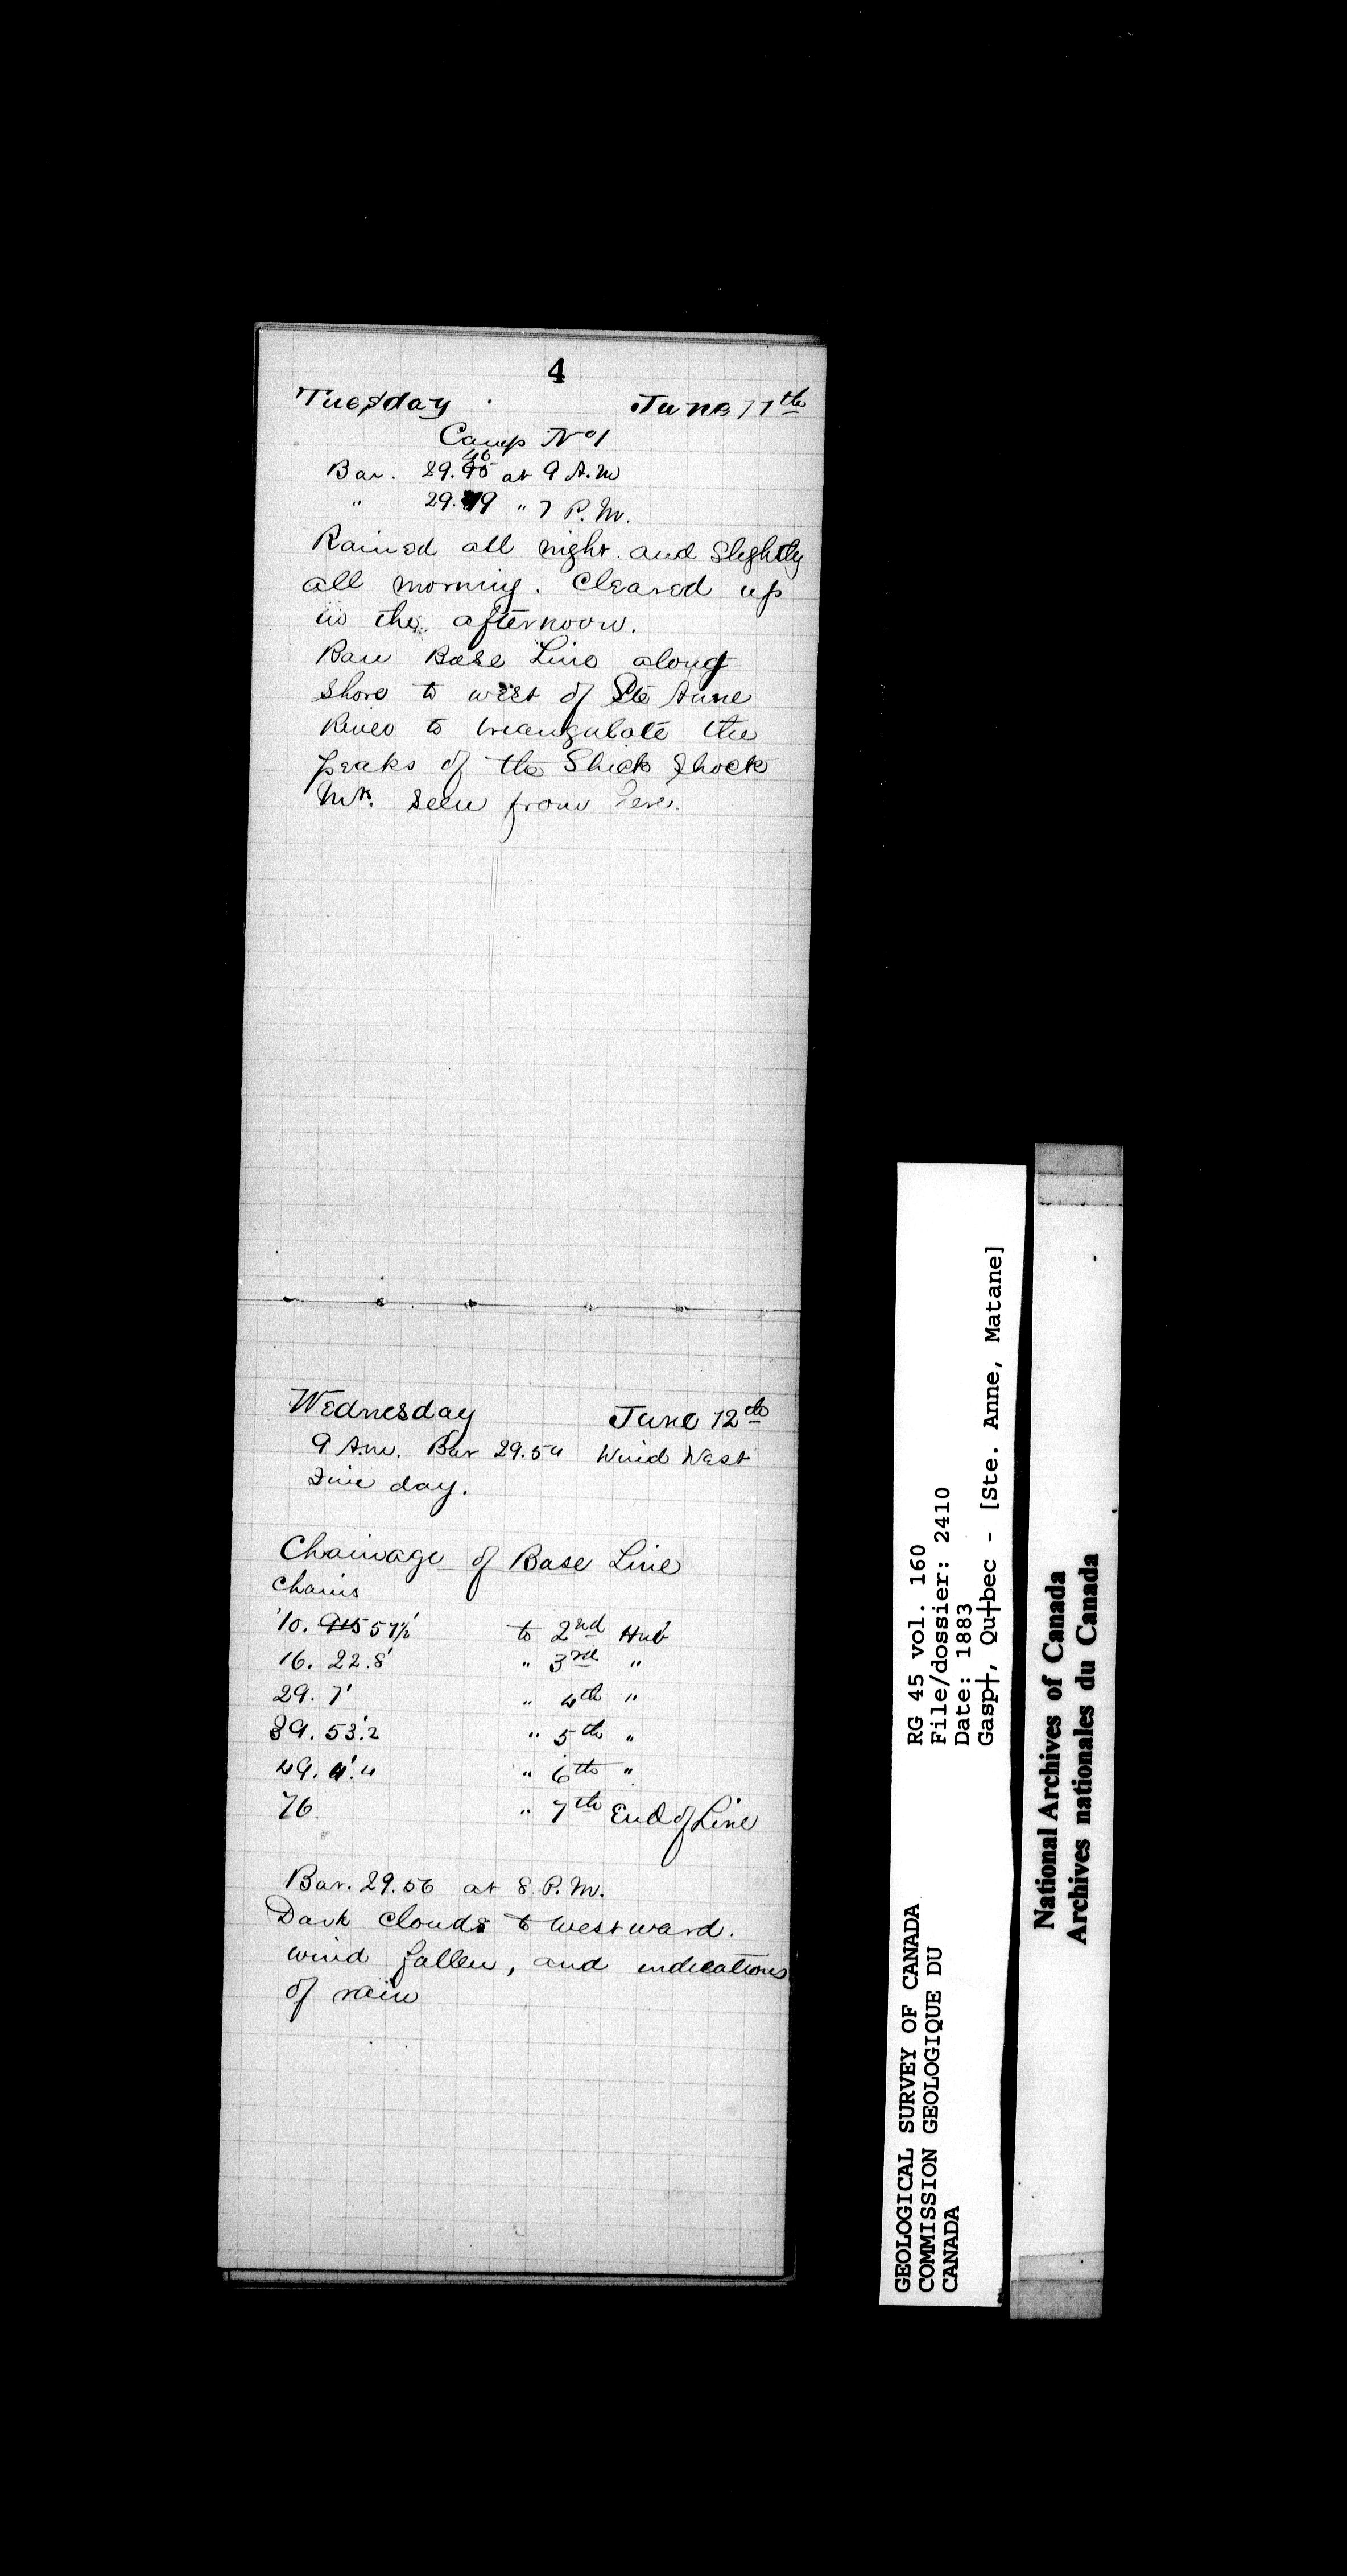 4
Tuesday June 11th
Camp No 1
46
Bar. 29.95 at 9 A.M
" 29.49 " 7 P.M.
Rained all night and slightly
all morning. Cleared up
in the afternoon.
Ran Base Line along
shore to west of Ste Anne
River to triangulate the
peaks of the Shick Shock
Mts. seen from here.
Wednesday June 12th
9 A.m. Bar 29.54 Wind West
Fine day.
Chainage of Base Line
Chains
10. 57½' to 2nd Hub
16. 22.8' " 3rd "
29. 7' " 4th "
39. 53'.2 " 5th "
49. 4'.4 " 6th "
76. " 7th End of Line
Bar. 29.56 at 8 P.M.
Dark clouds to westward.
wind fallen, and indications
of rain
GEOLOGICAL SURVEY OF CANADA
COMMISSION GEOLOGIQUE DU
CANADA
RG 45 vol. 160
File/dossier: 2410
Date: 1883
Gasp†, Qu†bec - [Ste. Anne, Matane]
National Archives of Canada
Archives nationales du Canada